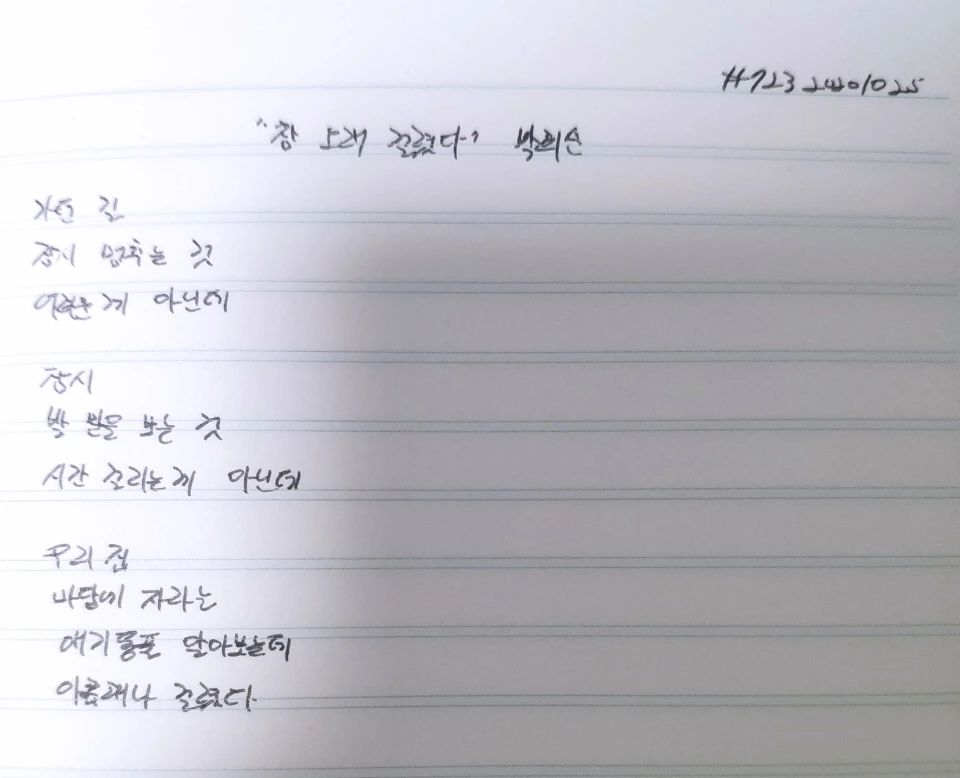 #723 20201025
"참 오래 걸렸다" 박희순
가던 길
잠시 멈추는 것
어려운 게 아닌데
잠시
발 밑을 보는 것
시간 걸리는게 아닌데
우리 집
마당에 자라는
애기똥풀 알아보는데
아홉해나 걸렸다.